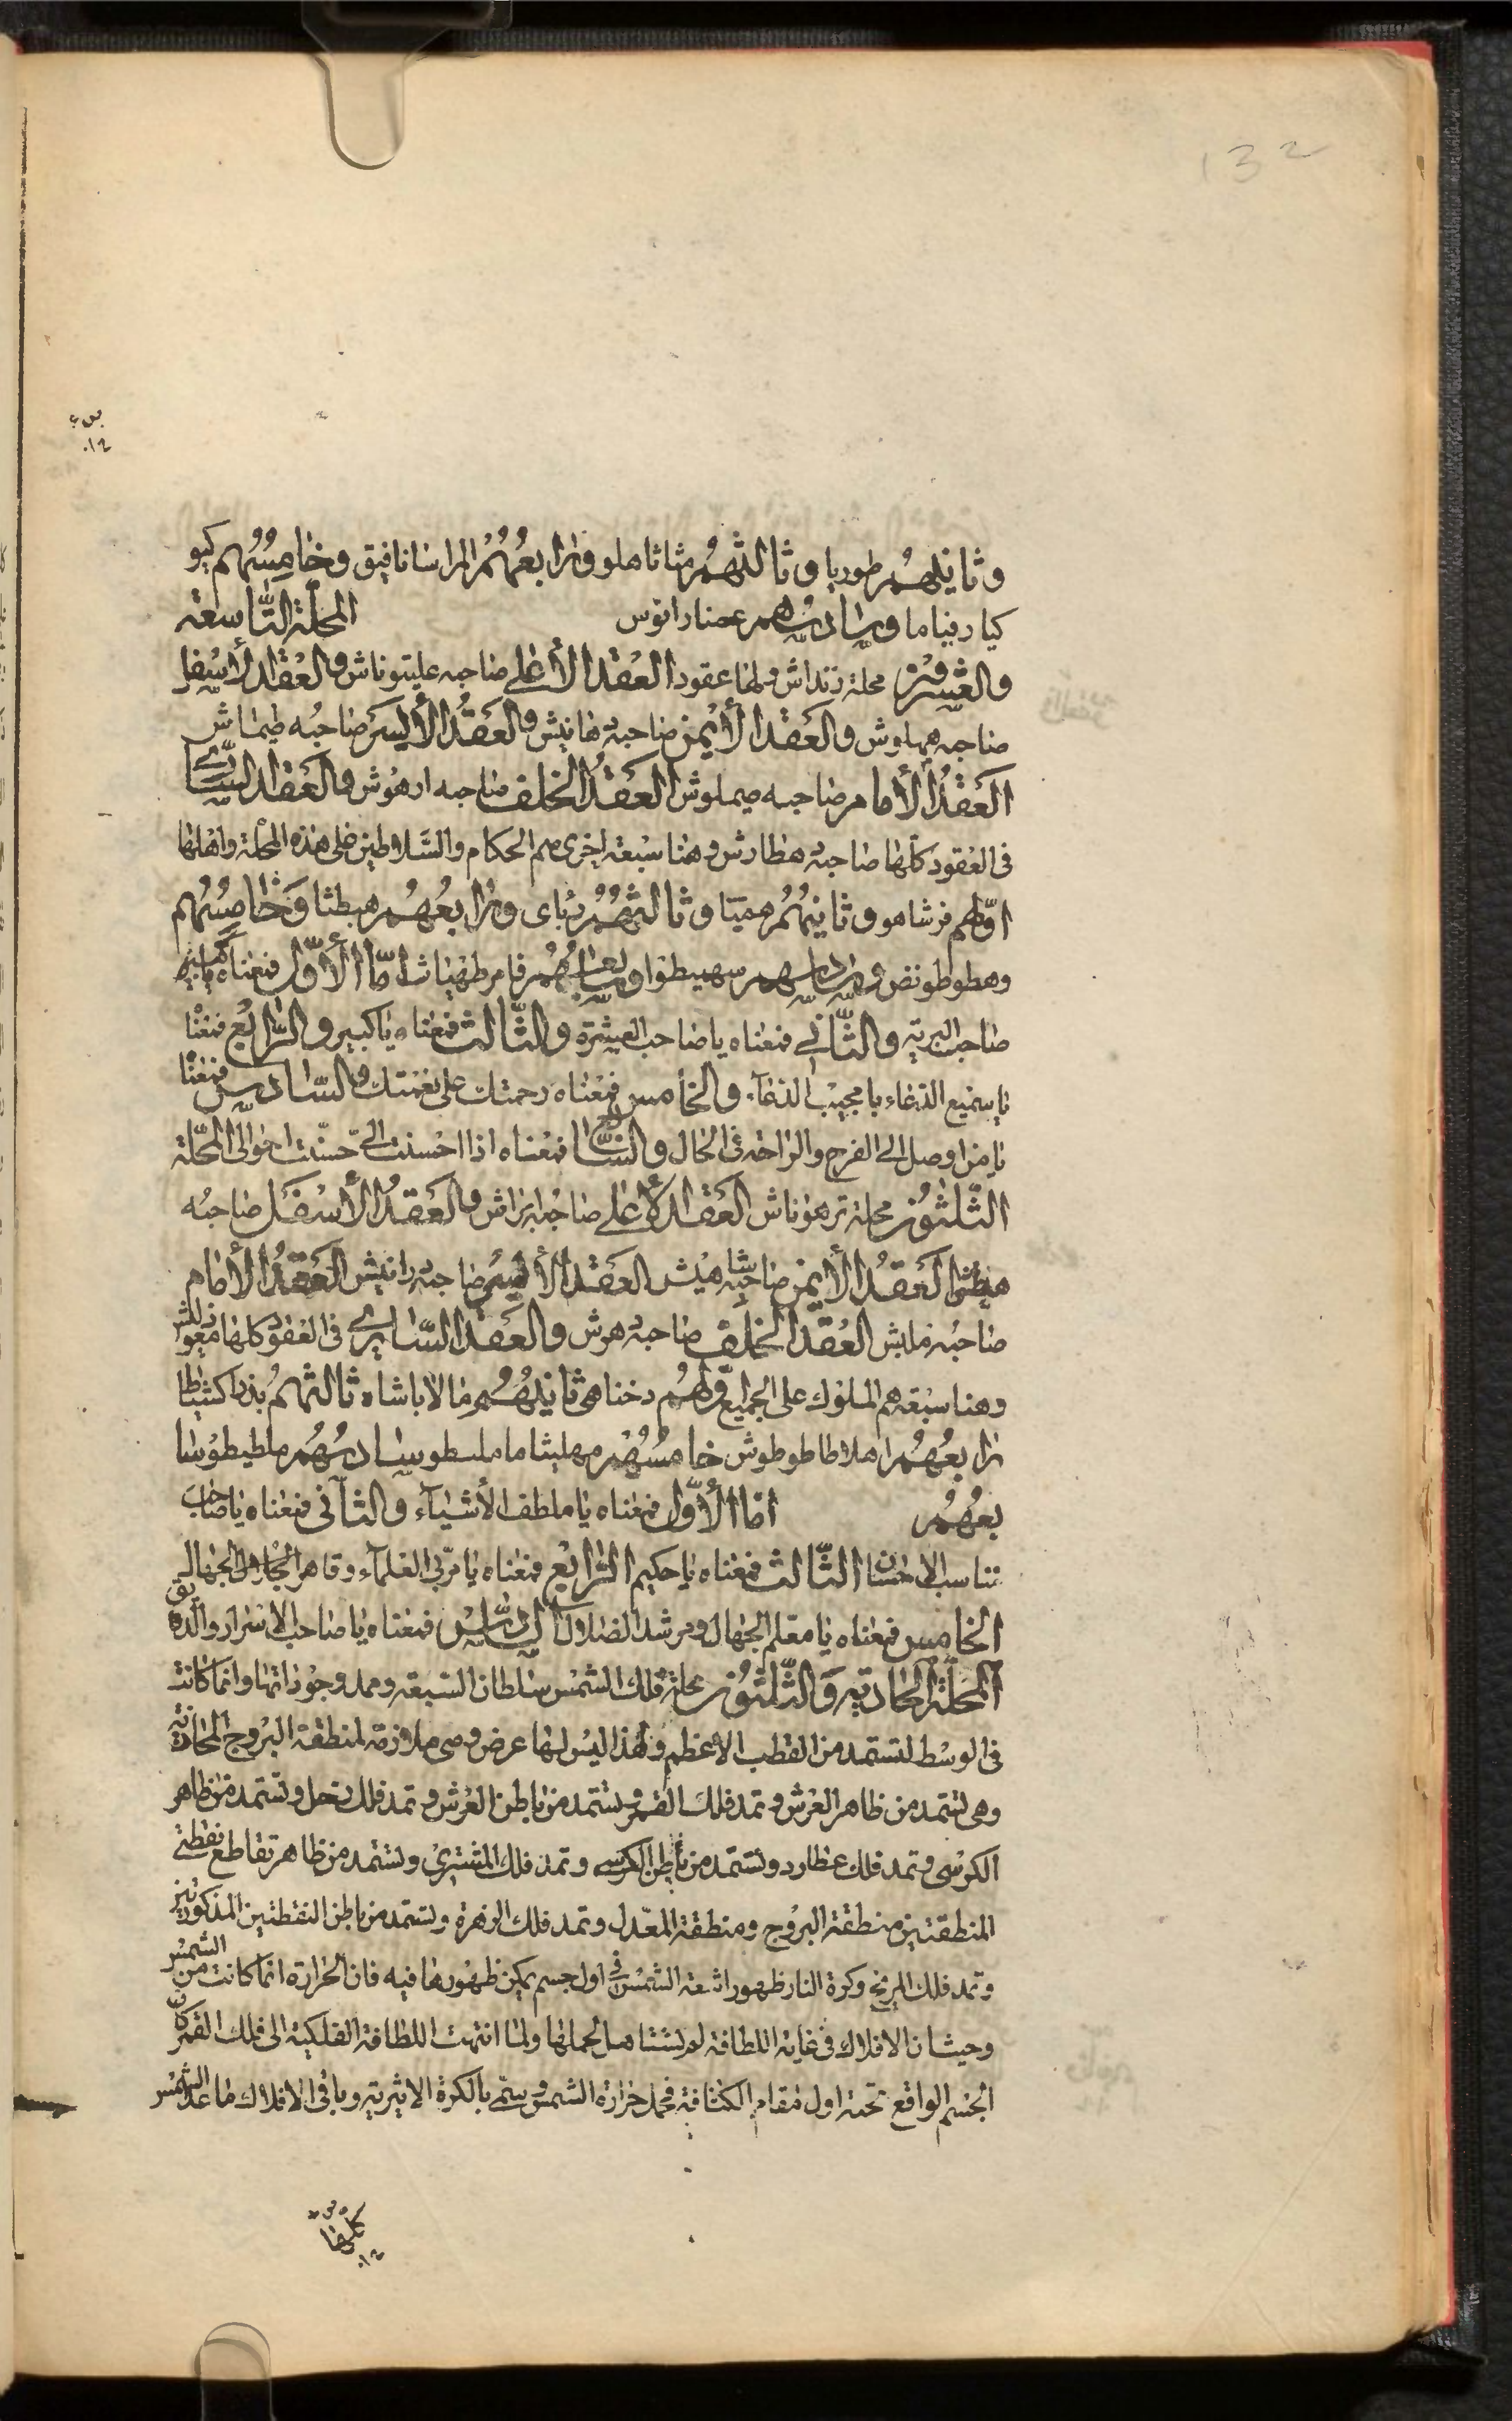 132
وثانيهم طوربا وثالثهم مثاثا هلو ورابعهم المراسانا فيق وخامسهم كيو
كيا رفياما وسادسهم عصنارانوس المحلة التاسعة
والعشرون محلة زنداش ولها عقود العقد الأعلى صاحبه عليتوناش والعقد الأسفل
صاحبه همهلوش والعقد الأيمن صاحبه هانيش والعقد الأيسر صاحبه طيماش
العقد الأمام صاحبه صيملوش العقد الخلف صاحبه ارهوش والعقد الساري
في العقود كلها صاحبه هطارش وهنا سبعة اخرى هم الحكام والسلاطين على هذه المحلة واهلها
اولهم فرشاهو وثانيهم هميتا وثالثهم دباى ورابعهم هبطثا وخامسهم
وهطوطونض وسادسهم سهيطفوا وسابعهم فامرطهياث اما الأول فمعناه
صاحب البرية والثاني فمعناه يا صاحب العيشرة والثالث فمعناه يا كبير والرابع فمعنا
يا سميع الدعاء يا مجيب الدعآء والخامس فمعناه رحمتك على نعمتك والسادس فمعنا
يا من اوصل الى الفرج والراحة في الحال والسابع فمعناه اذا احسنت الىّ حسّنت احوالى المحلة
الثلثون محلة ترهوناش العقد الأعلى صاحبه ابراش والعقد الأسفل صاحبه
هيطش العقد الأيمن صاحبه شاهيش العقد الأيسر صاحبه رانيش العقد الأمام
صاحبه فمليش العقد الخلف صاحبه هرش والعقد الساري في العقود كلها
وهنا سبعة هم الملوك على الجميع اولهم دخناهى ثانيهم مالاباشاه ثالثهم بذرا كشطاطا
رابعهم اهلاطا طوطوش خامسهم مهليثا ما ملسطو سادسهم ملطيطوسا
بعهم اما الأول فمعناه يا ملطف الأشيآء والثانى فمعناه يا صاحب
تناسب الاحسان الثالث فمعناه يا حكيم الرابع فمعناه يا مربي العلمآء وقاهر الجهال
الخامس فمعناه يا معلم الجهال ومرشد الضلال السادس فمعناه يا صاحب الاسرار والدقايق
المحلة الحادية والثلثون محلة فلك الشمس سلطان السبعة وممد وجوداتها وانما كانت
في الوسط لتستمد من القطب الأعظم ولهذا ليس لها عرض وهى ملازمة لمنطقة البروج المحاذية
وهى تستمد من ظاهر العرش وتمد فلك القمر وتستمد من باطن العرش وتمد فلك زحل وتستمد من ظاهر
الكرسى وتمد فلك عطارد وتستمد من باطن الكرسى وتمد فلك المشترى وتستمد من ظاهر تقاطع نقطتي
المنطقتين منطقة البروج ومنطقة المعدل وتمد فلك الزهرة وتستمد من باطن النقطتين المذكورتين
وتمد فلك المريخ وكرة النار ظهور اشعة الشمس في اول جسم يمكن ظهورها فيه فان الحرارة انما كانت من الشمس
وحيث ان الافلاك في غاية اللطافة لم تستاهل لحملها ولما انتهت اللطافة الفلكية الى فلك القمر كان
الجسم الواقع تحته اول مقام الكثافة فحمل حرارة الشمس وسمى بالكرة الاثيرية وباقى الافلاك ما عدا الشمس
كلها